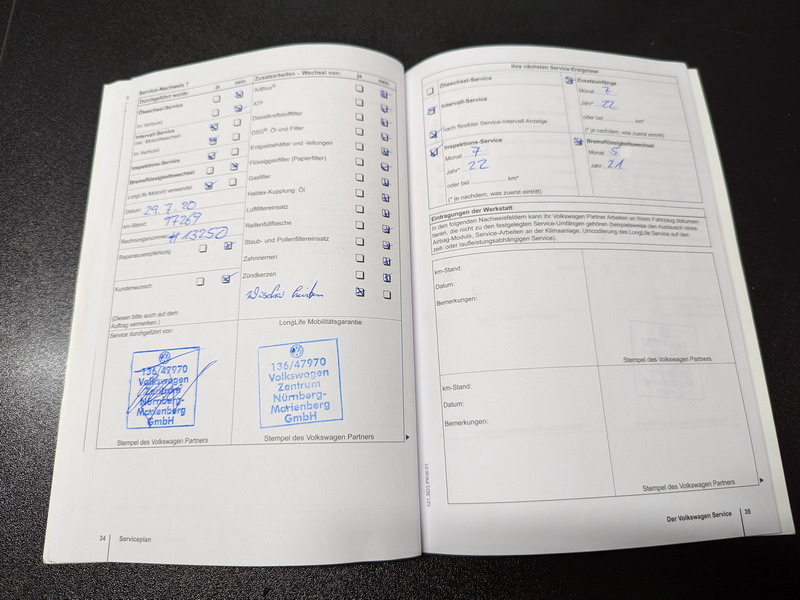 Service-Nachweis ?
Durchgeführt wurde: ja nein
Ölwechsel-Service
im Verbund
Intervall-Service
inkl. Motorölwechsel
im Verbund
Inspektions-Service
Bremsflüssigkeitswechsel
LongLife Motoröl verwendet
Datum: 29.7.20
km-Stand: 77269
Rechnungsnummer: #13250
Reparaturempfehlung
Kundenwunsch
(Diesen bitte auch auf dem
Auftrag vermerken.)
Service durchgeführt von:
136/47970
Volkswagen
Zentrum
Nürnberg-
Marienberg
GmbH
Stempel des Volkswagen Partners
Zusatzarbeiten - Wechsel von: ja nein
AdBlue®
ATF
Dieselkraftstofffilter
DSG® Öl und Filter
Erdgasbehälter und -leitungen
Flüssiggasfilter (Papierfilter)
Gasfilter
Haldex-Kupplung Öl
Luftfiltereinsatz
Reifenfüllflasche
Staub- und Pollenfiltereinsatz
Zahnriemen
Zündkerzen
LongLife Mobilitätsgarantie:
136/47970
Volkswagen
Zentrum
Nürnberg-
Marienberg
GmbH
Stempel des Volkswagen Partners
34 Serviceplan
Ihre nächsten Service-Ereignisse
Ölwechsel-Service
Intervall-Service
nach flexibler Service-Intervall-Anzeige
Zusatzumfänge
Monat 7
Jahr* 22
oder bei km*
(* je nachdem, was zuerst eintritt)
Inspektions-Service
Monat 7
Jahr* 22
oder bei km*
(* je nachdem, was zuerst eintritt)
Bremsflüssigkeitswechsel
Monat 5
Jahr 21
Eintragungen der Werkstatt
In den folgenden Nachweisfeldern kann Ihr Volkswagen Partner Arbeiten an Ihrem Fahrzeug dokumen-
tieren, die nicht zu den festgelegten Service-Umfängen gehören (beispielsweise den Austausch eines
Airbag-Moduls, Service-Arbeiten an der Klimaanlage, Umcodierung des LongLife Service auf den
zeit- oder laufleistungsabhängigen Service).
km-Stand:
Datum:
Bemerkungen:
Stempel des Volkswagen Partners
km-Stand:
Datum:
Bemerkungen:
Stempel des Volkswagen Partners
Der Volkswagen Service 35